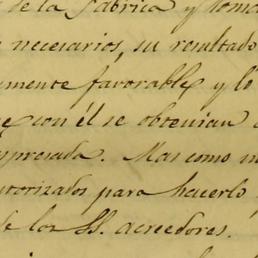 de la fabrica y toma
necesarios, su resultado
mente favorable y lo
con él se obtenian
empresada. Mas como n
utorizados para hacerlo
de los SS. acreedores.